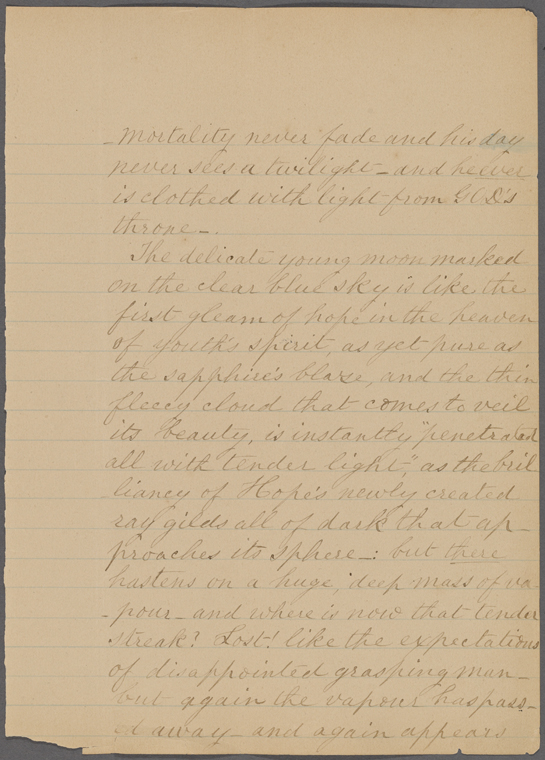 -mortality never fade and his day
never sees a twilight - and he ever
is clothed with light from GOD's
throne -.
The delicate young moon marked
on the clear blue sky is like the
first gleam of hope in the heaven
of youth's spirit, as yet pure as
the sapphire's blaze, and the thin
fleecy cloud that comes to veil
its beauty, is instantly "penetrated
all with tender light," as the bril
liancy of Hope's newly created
ray gilds all of dark that ap-
proaches its sphere -: but there
hastens on a huge, deep mass of va-
-pour - and where is now that tender
streak? Lost! like the expectations
of disappointed grasping man -
but again the vapour has pass-
ed away - and again appears